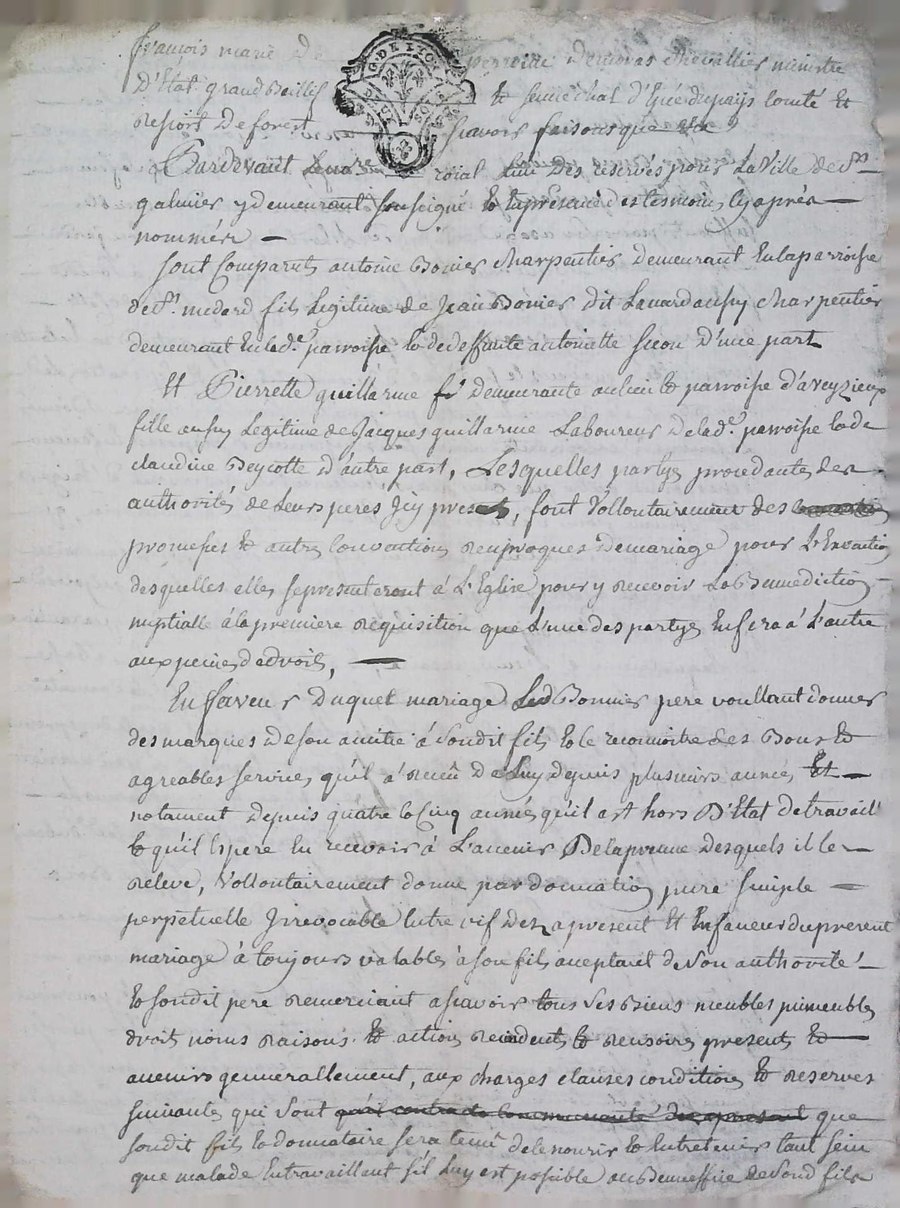 françois marie de perroitte demoras chevallier ministre
D'Etat grand Beillif & senechal d'Epée du pays Comté &
Resort de forest scavoir faisons que
Pardevant Le no.re roial L'un Des reservés pour La Ville de St
galmier y demeurant soussigné & En presance des tesmoins cy après
nommés
sont Comparus antoine Bonier charpentier demeurant En la parroisse
de St. medard fils Legitime de Jean Bonier dit Lauard aussy charpentier
demeurant En lad.e parroisse & de deffunte antoinette d'une part
Et Pierrette guillarme demeurante au lieu & parroisse d'aveyzieux
fille aussy Legitime de Jacques guillarme Laboureur de lad.e parroisse & de
claudine Beycotte d'autre part, Lesquelles partyes procedantes des
authorités de Leurs peres Icy presents, font Vollontairement des
promesses & autres Conventions reciproques de mariage pour L'Execution
desquelles elles se presenteront à L'Eglise pour y recevoir La Benediction
nuptialle à la premiere requisition que L'une des partyes En fera à L'autre
aux peines de droit,
En faveur Duquel mariage Led Bonnier pere voullant donner
des marques de son amitié à Sondit fils & le reconnoitre des Bons &
agreables services qu'il a receü de Luy depuis plusieurs années Et
notament Depuis quatre & Cinq années qu'il est hors D'Etat de travail
& qu'il Espere En recevoir à L'avenir De la preuve Desquels il le
releve, Vollontairement donne par donnation pure simple
perpetuelle Irrevocable Entre vif Dez a present Et En faveur du present
mariage à toujours valables à son fils acceptant de son authorité
& Sondit pere remerciant a scavoir tous Ses Biens meubles immeubles
droits noms raisons & actions recindents & recisoires presents &
avenirs gennerallement, aux charges clauses conditions & reserves
suivantes qui sont qu'il contracte communauté des a present que
sondit fils & donnataire sera tenü de le nourir & Entretenir tant sein
que malade En travaillant s'il Luy est possible au Benneffice de Sond fils